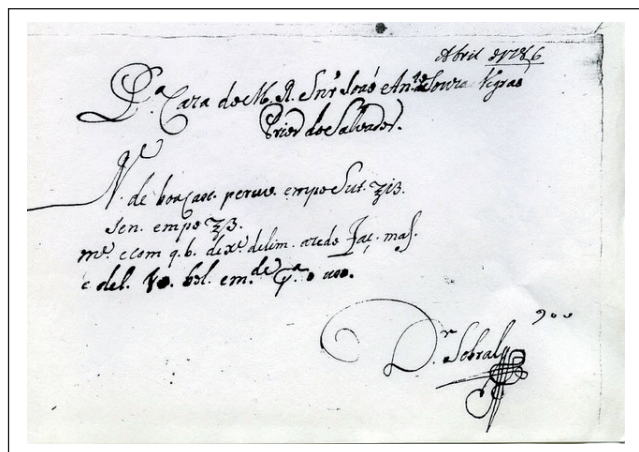 Abril de 1786
P.ª Caza do M. R. Snr José Ant.º de Souza Negrão
Prior do Salvador.
N. de boa casc. peruv. em po Sut. ʒiß.
Sen. em po ʒß.
m.e e com q. b. de x.e de lim. azedo Faç. mas.
e del. bol. em. de q.ª o uso.
900
D.r Sobral